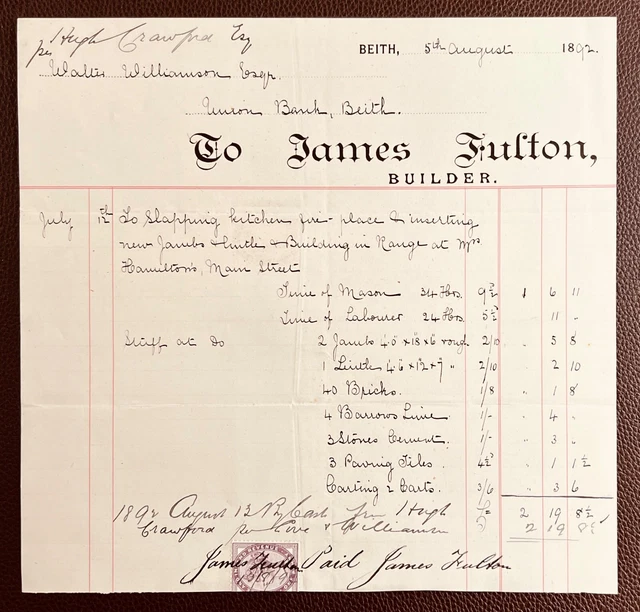 Hugh Crawford Esq
per
BEITH, 5th August 1892.
Walter Williamson Esqr.
Union Bank, Beith.
To James Fulton,
BUILDER.
July 12th To Slapping kitchen fire-place & inserting
new Jambs & lintle & Building in Range at Mrs
Hamilton's, Main Street
Time of Mason 34 Hrs. 9½ 1 6 11
Time of Labourer 24 Hrs. 5½ " 11 "
Stuff at Do 2 Jambs 4.5 x 18 x 6 rough. 2/10 " 5 8
1 Lintle 4.6 x 12 x 7 " 2/10 " 2 10
40 Bricks. 1/8 " 1 8
4 Barrows Lime. 1/- " 4 "
3 Stones Cement. 1/- " 3 "
3 Paving Tiles. 4½ " 1 1½
Carting 2 Carts. 3/6 " 3 6
2 19 8½
1892 August 12 By Cash from Hugh
Crawford per Love & Williamson 2 19 8½
James Fulton Paid James Fulton